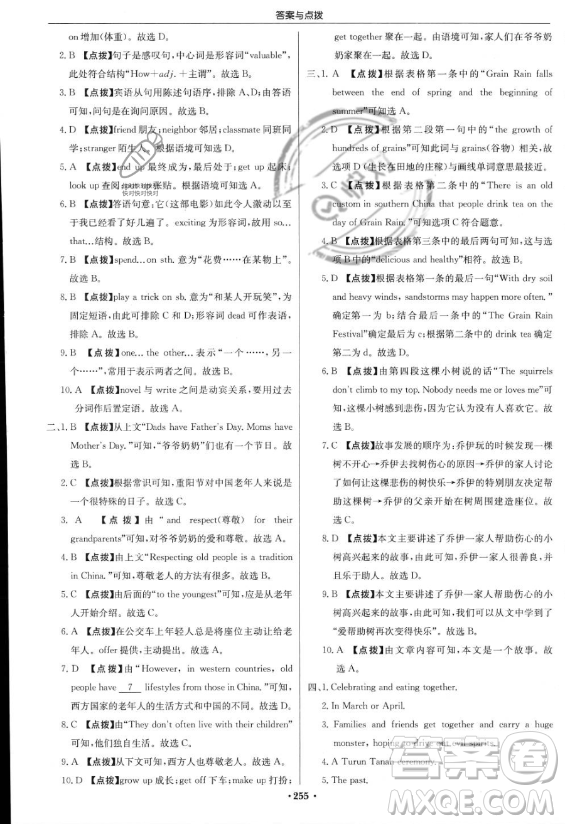 答案与点拨
on增加(体重)。故选D。
2. B 【点拨】句子是感叹句，中心词是形容词“valuable”，
此处符合结构“How+adj. +主谓”。故选B。
3. B 【点拨】宾语从句用陈述句语序，排除A、D；由答语
可知，问句是在询问原因。故选B。
4. D 【点拨】friend朋友；neighbor邻居；classmate同班同
学；stranger陌生人。根据语境可知选D。
5. A 【点拨】end up最终成为，最后处于；get up起床；
look up查阅；put up张贴。根据语境可知选A。
6. B 【点拨】答语句意：它(这部电影)如此令人激动以至
于我已经看了好几遍了。exciting为形容词，故用so
that...结构。故选B。
7. B 【点拨】spend...on sth.意为“花费……在某物上”。
故选B。
8. B 【点拨】play a trick on sb.意为“和某人开玩笑”，为
固定短语，由此可排除C、D；形容词dead可作表语，
排除A。故选B。
9. B 【点拨】one... the other...表示“一个……，另一
个……”，常用于表示两者之间。故选B。
10. A 【点拨】novel与write之间是动宾关系，要用过去
分词作后置定语。故选A。
二、1. B 【点拨】从上文“Dads have Father's Day. Moms have
Mother's Day.”可知，“爷爷奶奶”们也有一个节日。故
选B。
2. C 【点拨】根据常识可知，重阳节对中国老年人来说是
一个很特殊的日子。故选C。
3. A 【点拨】由“and respect(尊敬) for their
grandparents”可知，对爷爷奶奶的爱和尊敬。故选A。
4. B 【点拨】由上文“Respecting old people is a tradition
in China.”可知，尊敬老人的方法有很多。故选B。
5. C 【点拨】由后面的“to the youngest”可知，应是从老年
人开始介绍。故选C。
6. A 【点拨】在公交车上年轻人总是将座位主动让给老
年人。offer提供，主动……。故选A。
7. D 【点拨】由“However, in western countries, old
people have 7 lifestyles from those in China.”可知，西
方国家的老年人的生活方式和中国的不同。故选D。
8. C 【点拨】由“They don't often live with their children”
可知，他们独自生活。故选C。
9. A 【点拨】从下文可知，西方人也尊敬老人。故选A。
10. D 【点拨】grow up成长；get off下车；make up打扮；
get together聚在一起。由语境可知，家人们在爷爷奶
奶家聚在一起。故选D。
三、1. A 【点拨】根据表格第一条中的“Grain Rain falls
between the end of spring and the beginning of
summer”可知选A。
2. D 【点拨】根据第二段第一句中的“the growth of
hundreds of grains”可知此词与grains(谷物)相关，故
选项D(生长在田地的庄稼)与画线单词意思最接近。
3. C 【点拨】根据表格第二条中的“There is an old
custom in southern China that people drink tea on the
day of Grain Rain.”可知选项C符合题意。
4. B 【点拨】根据表格第三条中的最后两句可知，与选
项B中的“delicious and healthy”相符。故选B。
5. D 【点拨】根据表格第一条的最后一句“With dry soil
and heavy winds, sandstorms may happen more often.”
确定第一为b；由表格第四条中的“The Grain Rain
Festival”确定第三为c；根据第二条中的drink tea确
定第二为d。故选D。
四段这棵小树说的话“The squirrels
don't climb to my top. Nobody needs me or loves me”可
知，这棵小树感到悲伤，因为它认为没有人喜欢它。故
选B。
2. C 【点拨】故事发展的顺序为：乔伊玩的时候发现一棵
树不开心→乔伊去找树伤心的原因→乔伊的家人讨论
了如何使这棵树不再伤心→乔伊的特别朋友决定帮助
这棵树→乔伊的父亲开始在树周围建造座位。故
选C。
3. D 【点拨】本文主要讲述了乔伊一家人帮助伤心的小
树高兴起来的故事，由此可知，乔伊一家人愿意帮助并
且乐于助人。故选D。
【点拨】本文主要讲述了乔伊一家人帮助伤心的小
树高兴起来的故事，由此可知，我们可以从文中学到了
“爱帮助树再次变得快乐”。故选B。
【点拨】由全文可知，本文是一个故事。故选A。
四、1. Celebrating and eating together.
2. In March or April.
3. Families and friends get together and carry a huge
monster, hoping to drive out evil spirits.
4. A Turun Tanah ceremony.
5. The past.
·255·